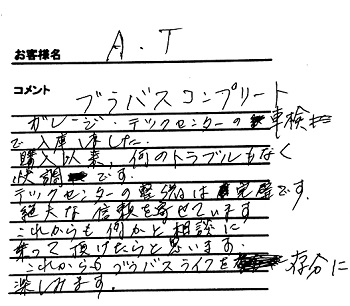 お客様名 A.T
コメント
ブラバスコンプリート
ガレージ・テックセンターの車検
で入庫しました.
購入以来、何のトラブルもなく
快調です.
テックセンターの整備は完璧です.
絶大な信頼を寄せています
これからも何かと相談に
乗って頂けたらと思います.
これからもブラバスライフを存分に
楽しみます.